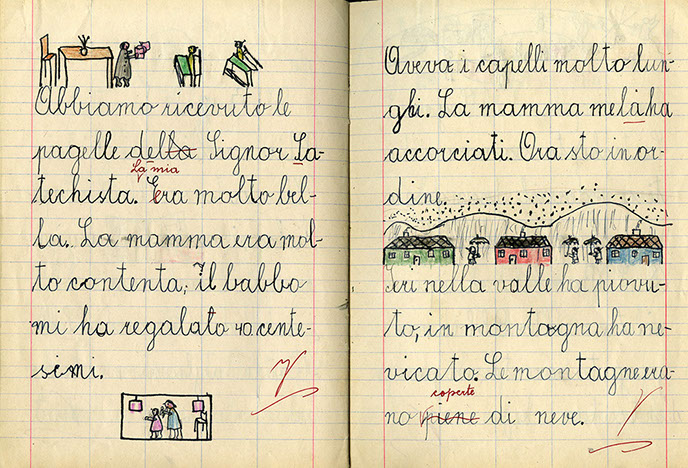 Abbiamo ricevuto le
pagelle della Signor Ca-
La mia
techista. Era molto bel-
la. La mamma era mol-
to contenta; il babbo
mi ha regalato 40 cente-
simi.
Aveva i capelli molto lun-
ghi. La mamma me là ha
accorciati. Ora sto in or-
dine.
Ieri nella valle ha piovu-
to, in montagna ha ne-
vicato. Le montagne era-
coperte
no piene di neve.